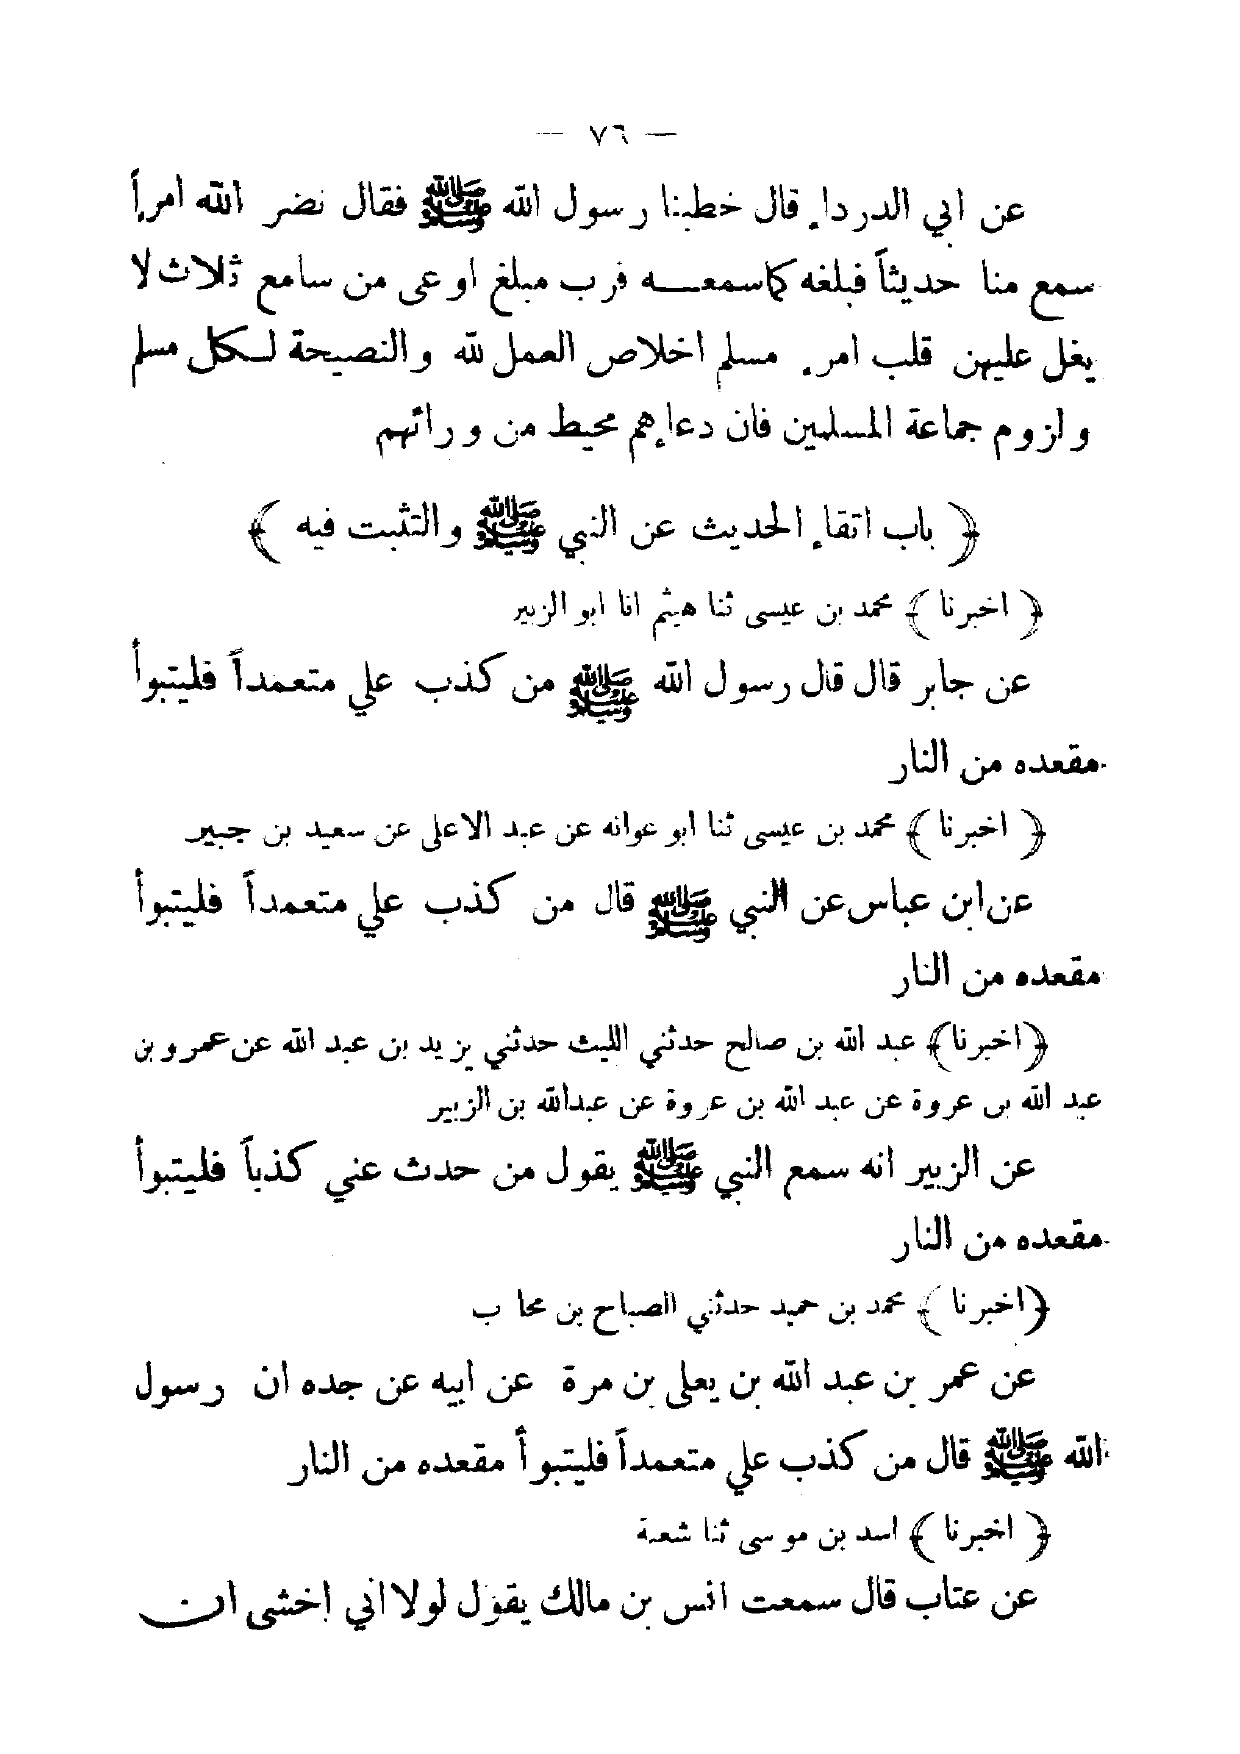 — ٧٦ —
عن ابي الدرداء قال خطبنا رسول الله ﷺ فقال نضر الله امرأ
سمع منا حديثاً فبلغه كما سمعه فرب مبلغ اوعى من سامع ثلاث لا
يغل عليهن قلب امرء مسلم اخلاص العمل لله والنصيحة لكل مسلم
ولزوم جماعة المسلمين فان دعاءهم محيط من ورائهم
﴿ باب اتقاء الحديث عن النبي ﷺ والتثبت فيه ﴾
﴿ اخبرنا ﴾ محمد بن عيسى ثنا هيثم انا ابو الزبير
عن جابر قال قال رسول الله ﷺ من كذب علي متعمداً فليتبوأ
مقعده من النار
﴿ اخبرنا ﴾ محمد بن عيسى ثنا ابو عوانه عن عبد الاعلى عن سعيد بن جبير
عن ابن عباس عن النبي ﷺ قال من كذب علي متعمداً فليتبوأ
مقعده من النار
﴿اخبرنا﴾ عبد الله بن صالح حدثني الليث حدثني يزيد بن عبد الله عن عمرو بن
عبد الله بن عروة عن عبد الله بن عروة عن عبدالله بن الزبير
عن الزبير انه سمع النبي ﷺ يقول من حدث عني كذباً فليتبوأ
مقعده من النار
﴿اخبرنا ﴾ محمد بن حميد حدثني الصباح بن محا ب
عن عمر بن عبد الله بن يعلى بن مرة عن ابيه عن جده ان رسول
الله ﷺ قال من كذب علي متعمداً فليتبوأ مقعده من النار
﴿ اخبرنا ﴾ اسد بن موسى ثنا شعبة
عن عتاب قال سمعت انس بن مالك يقول لولا اني اخشى ان